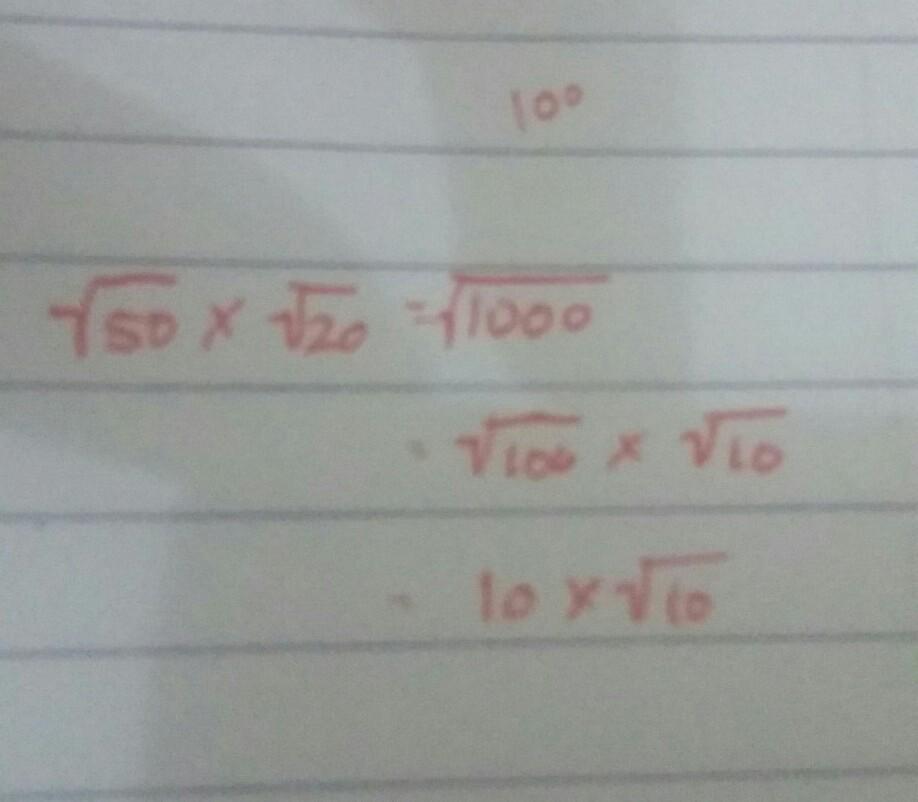 100
√50 × √20 = √1000
= √100 × √10
= 10 × √10